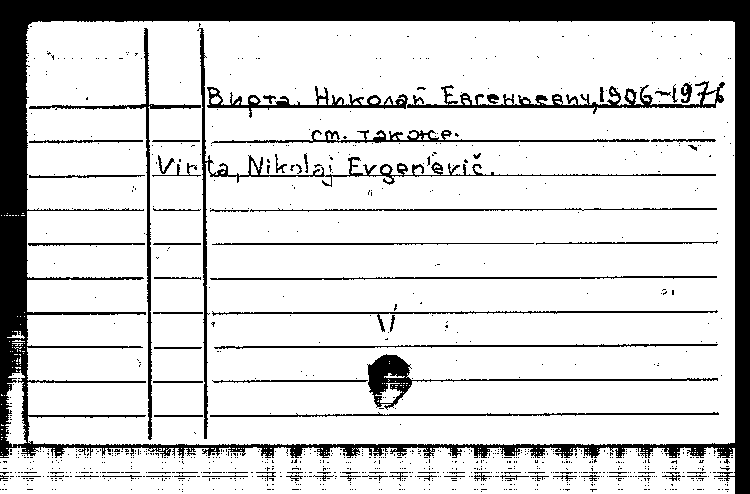 Вирта, Николай Евгеньевич, 1906-1976
см. также.
Virta, Nikolaj Evgen'evič.
V